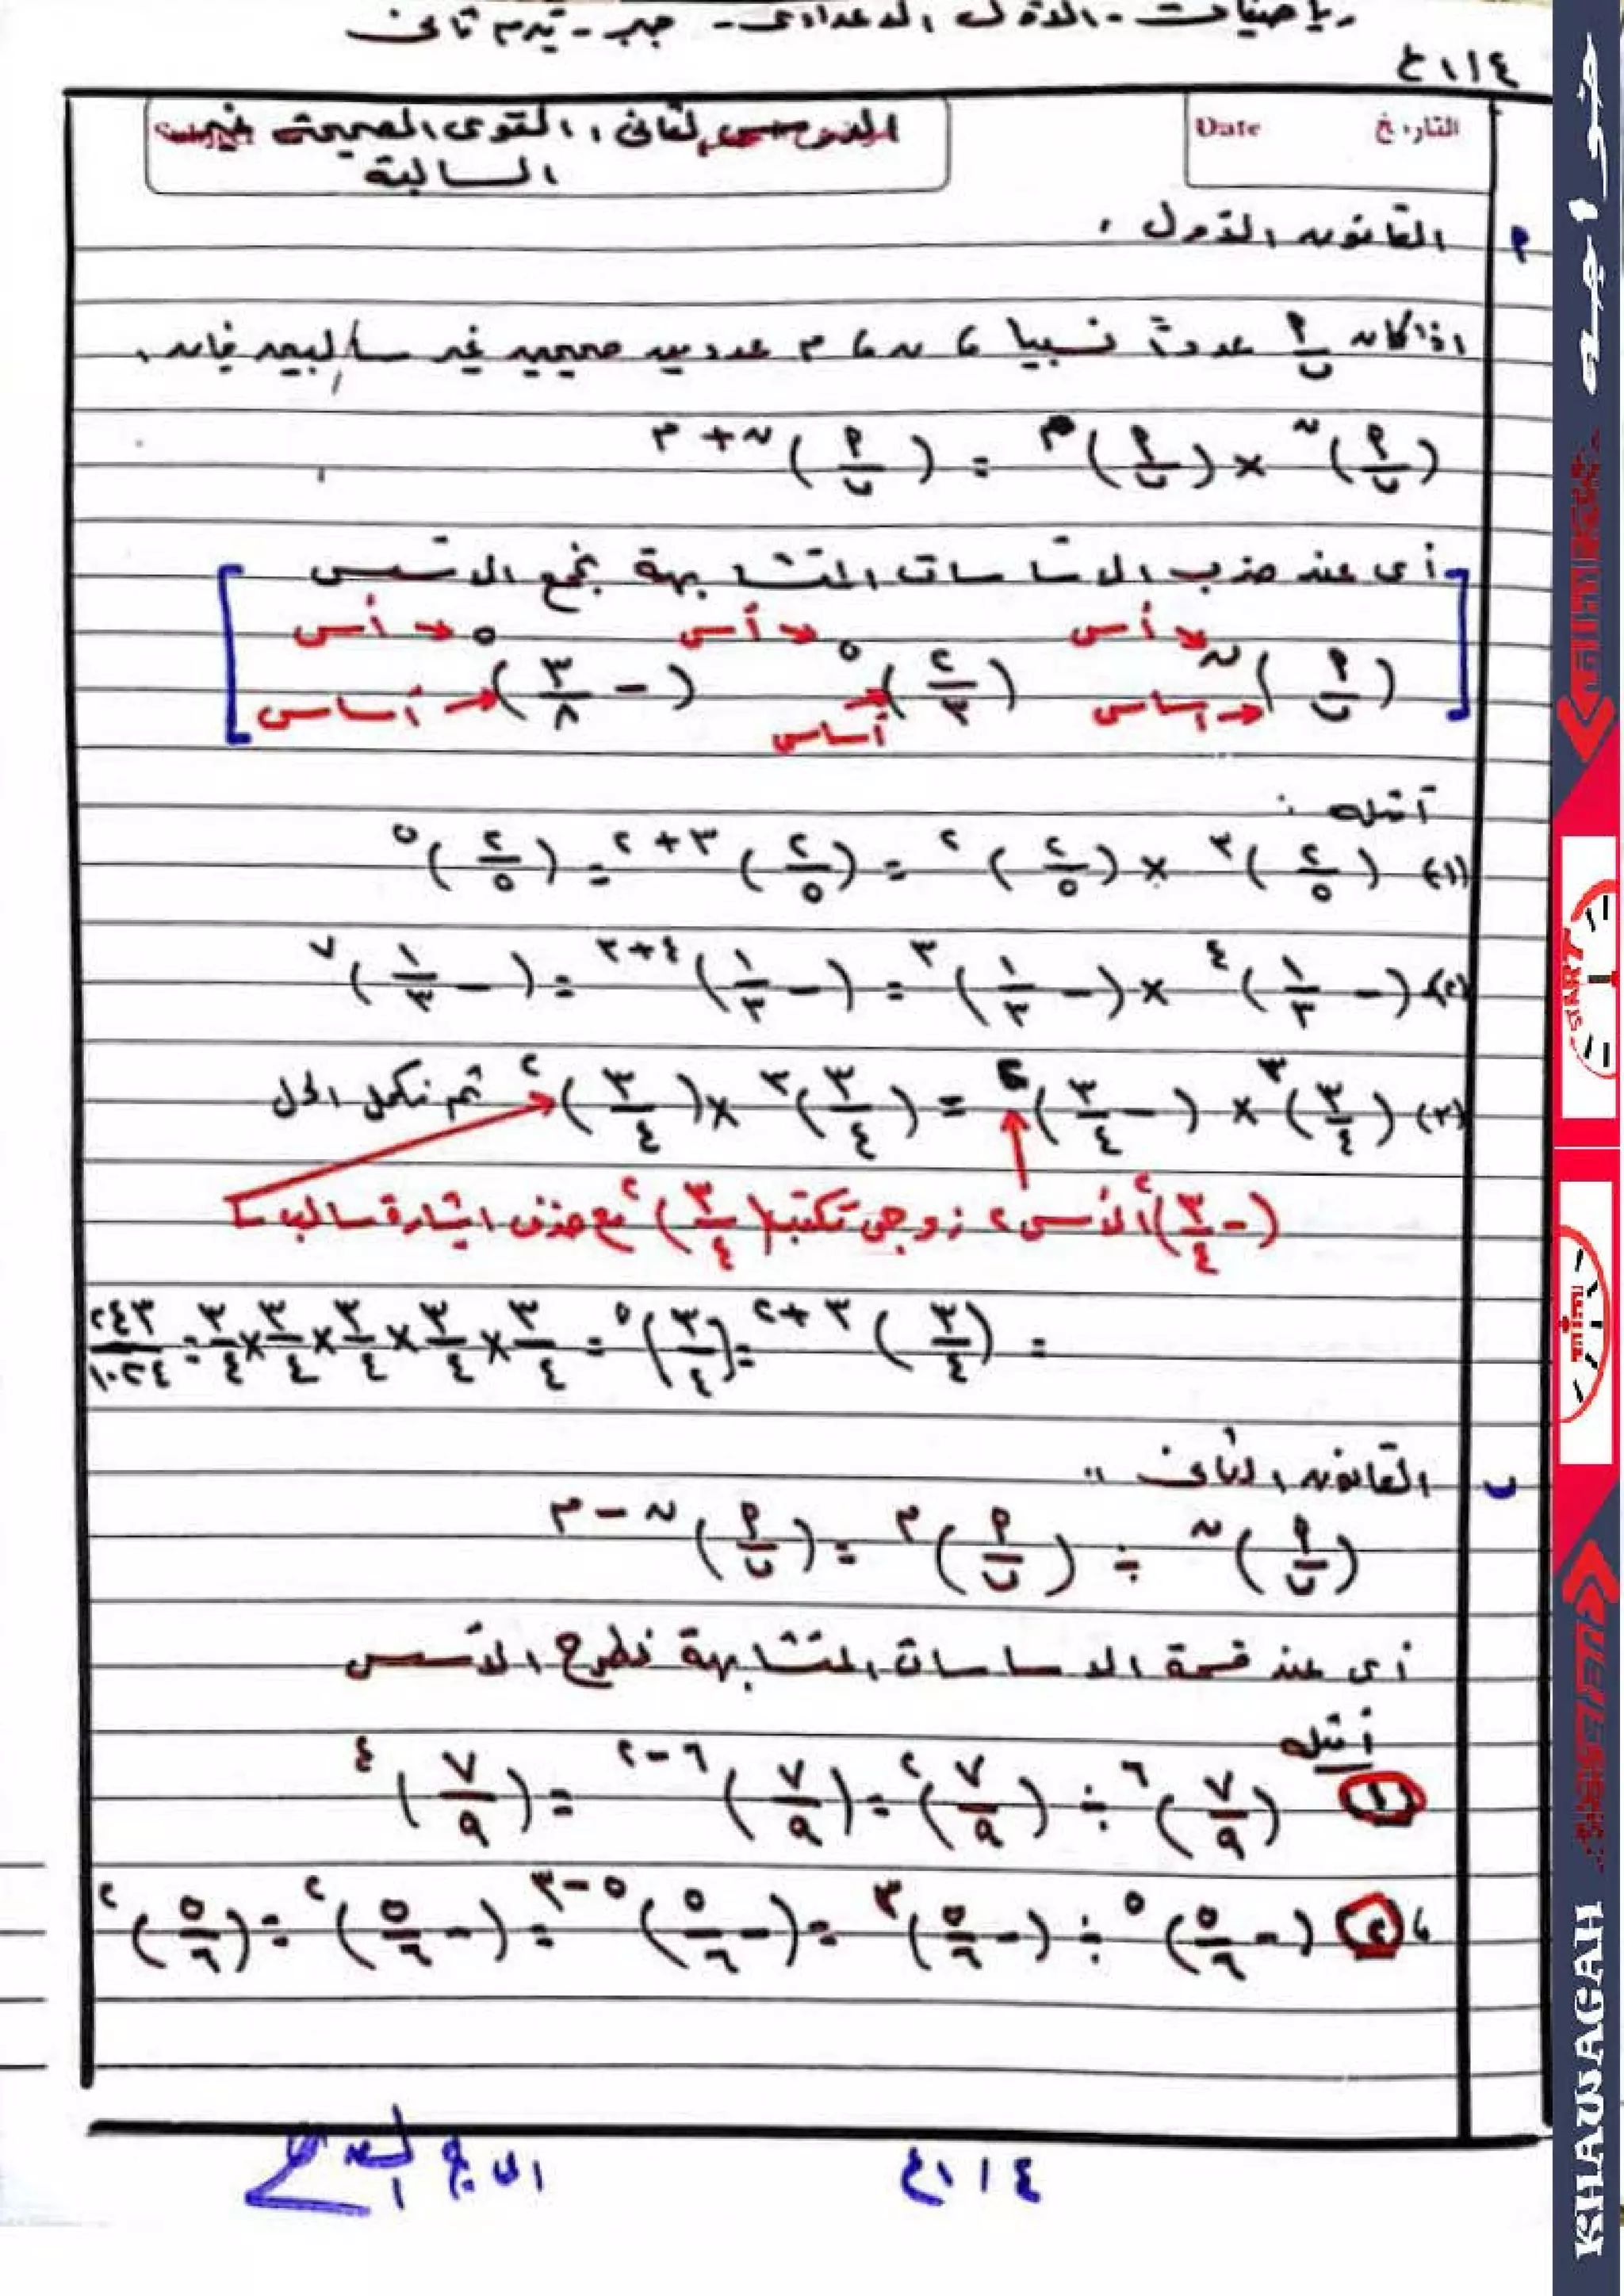 رياضيات - الأول الاعدادى - جبر - تيرم ثانى
٤ / ١ ع
التاريخ Date
الدرس الثانى : القوى الصحيحة غير
السالبة
P القانون الأول :
اذا كان P/ب عدداً نسبيا ، ن ، م عددين صحيحين غير سالبين فإن :
(P/ب)^ن × (P/ب)^م = (P/ب)^ن + م
أى عند ضرب الأساسات المتشابهة نجمع الأسس
أس أس أس
(P/ب)^ن (٢/٣)^٥ (- ٣/٨)^٥
أساس أساس أساس
أمثله :
(١) (٢/٥)^٣ × (٢/٥)^٢ = (٢/٥)^٣ + ٢ = (٢/٥)^٥
(٢) (- ١/٣)^٤ × (- ١/٣)^٣ = (- ١/٣)^٤+٣ = (- ١/٣)^٧
(٣) (٣/٤)^٣ × (- ٣/٤)^٢ = (٣/٤)^٣ × (٣/٤)^٢ ثم نكمل الحل
(- ٣/٤)^٢ الأس ٢ زوجى تكتب (٣/٤)^٢ مع حذف اشارة سالب
= (٣/٤)^٣ + ٢ = (٣/٤)^٥ = ٣/٤ × ٣/٤ × ٣/٤ × ٣/٤ × ٣/٤ = ٢٤٣/١٠٢٤
ب القانون الثانى :
(P/ب)^ن ÷ (P/ب)^م = (P/ب)^ن - م
أى عند قسمة الاساسات المتشابهة نطرح الأسس
أمثله
١ (٧/٩)^٦ ÷ (٧/٩)^٢ = (٧/٩)^٦ - ٢ = (٧/٩)^٤
، ٢ (- ٥/٦)^٥ ÷ (- ٥/٦)^٣ = (- ٥/٦)^٥ - ٣ = (- ٥/٦)^٢ = (٥/٦)^٢
٤ / ١ ع
خواجه
START
KHAWAGAH